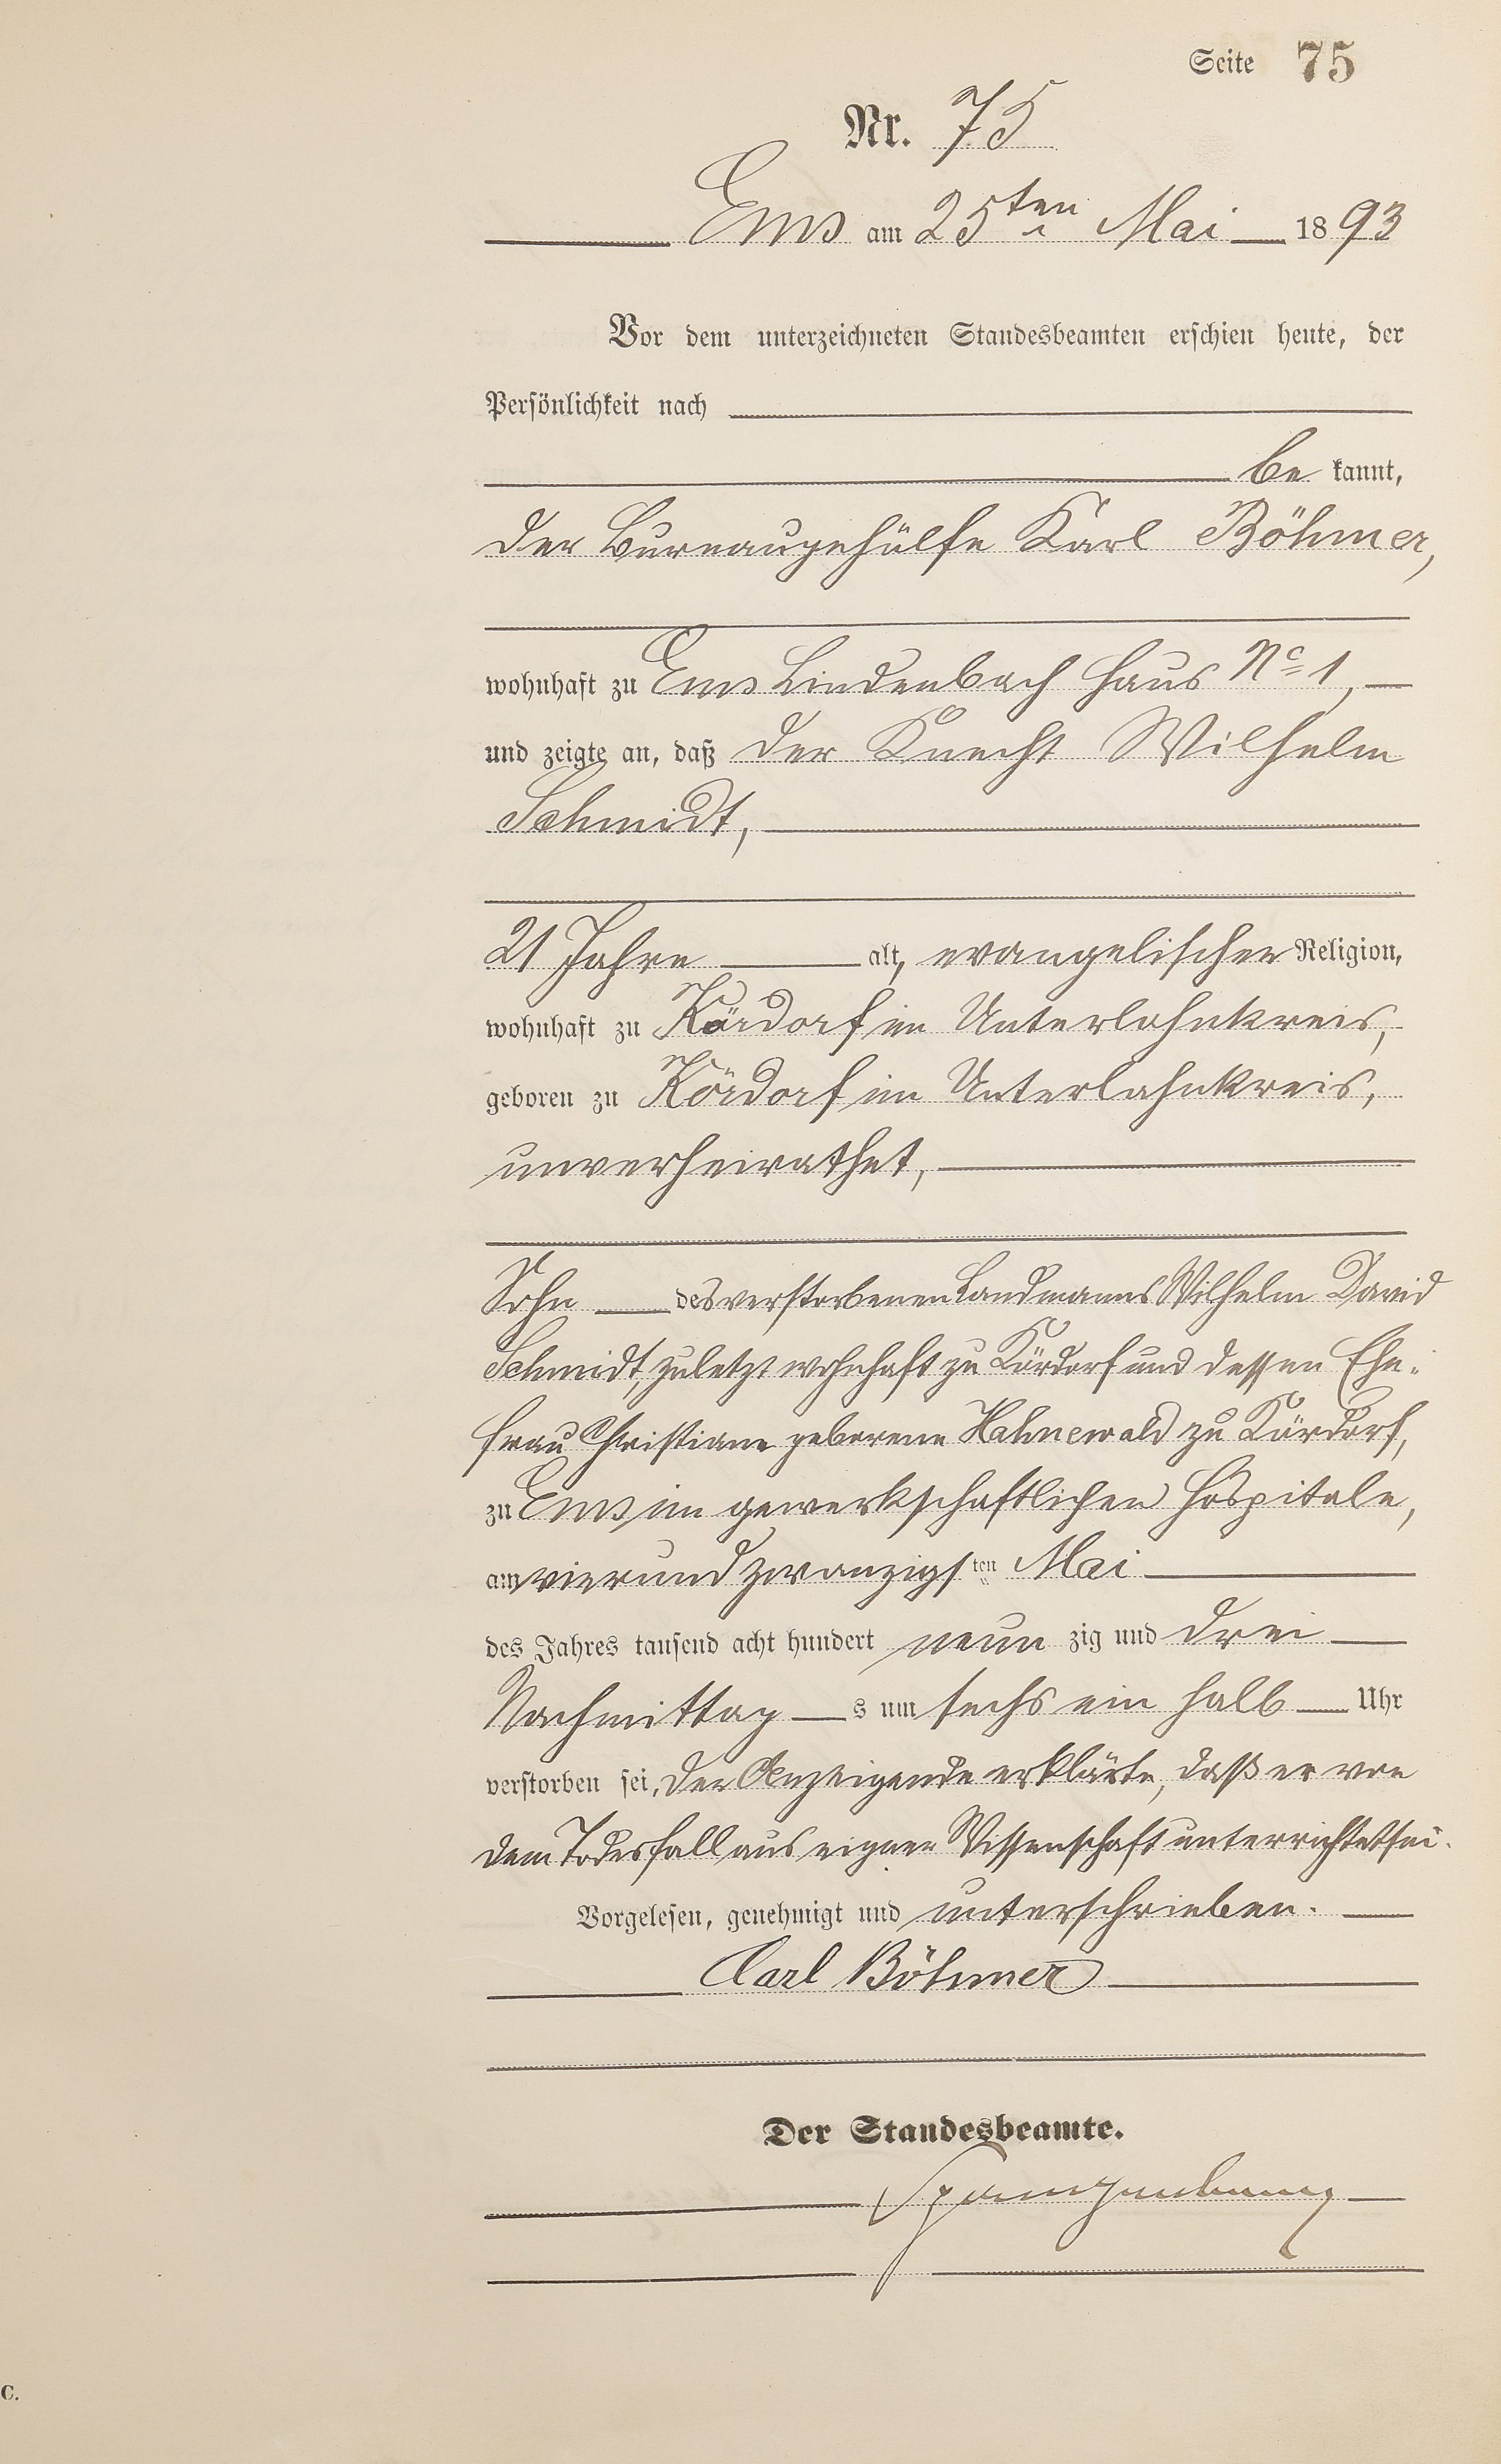 Seite 75
Nr. 75
Ems am 25ten Mai 1893
Vor dem unterzeichneten Standesbeamten erschien heute, der
Persönlichkeit nach
be kannt,
der Bureaugehülfe Karl Böhmer,
wohnhaft zu Ems Lindenbach Haus No 1,
und zeigte an, daß der Knecht Wilhelm
Schmidt,
21 Jahre alt, evangelischer Religion,
wohnhaft zu Kördorf im Unterlahnkreis,
geboren zu Kördorf im Unterlahnkreis,
unverheirathet,
Sohn des verstorbenen Landmanns Wilhelm David
Schmidt, zuletzt wohnhaft zu Kördorf und dessen Ehe-
frau Christiane geborene Hahnewald zu Kördorf,
zu Ems im gewerkschaftlichen Hospitale,
am vierundzwanzigsten Mai
des Jahres tausend acht hundert neun zig und drei
Nachmittag s um sechs ein halb Uhr
verstorben sei, der Anzeigende erklärte, daß er von
dem Todesfall aus eigner Wissenschaft unterrichtet sei.
Vorgelesen, genehmigt und unterschrieben.
Carl Böhmer
Der Standesbeamte.
C.